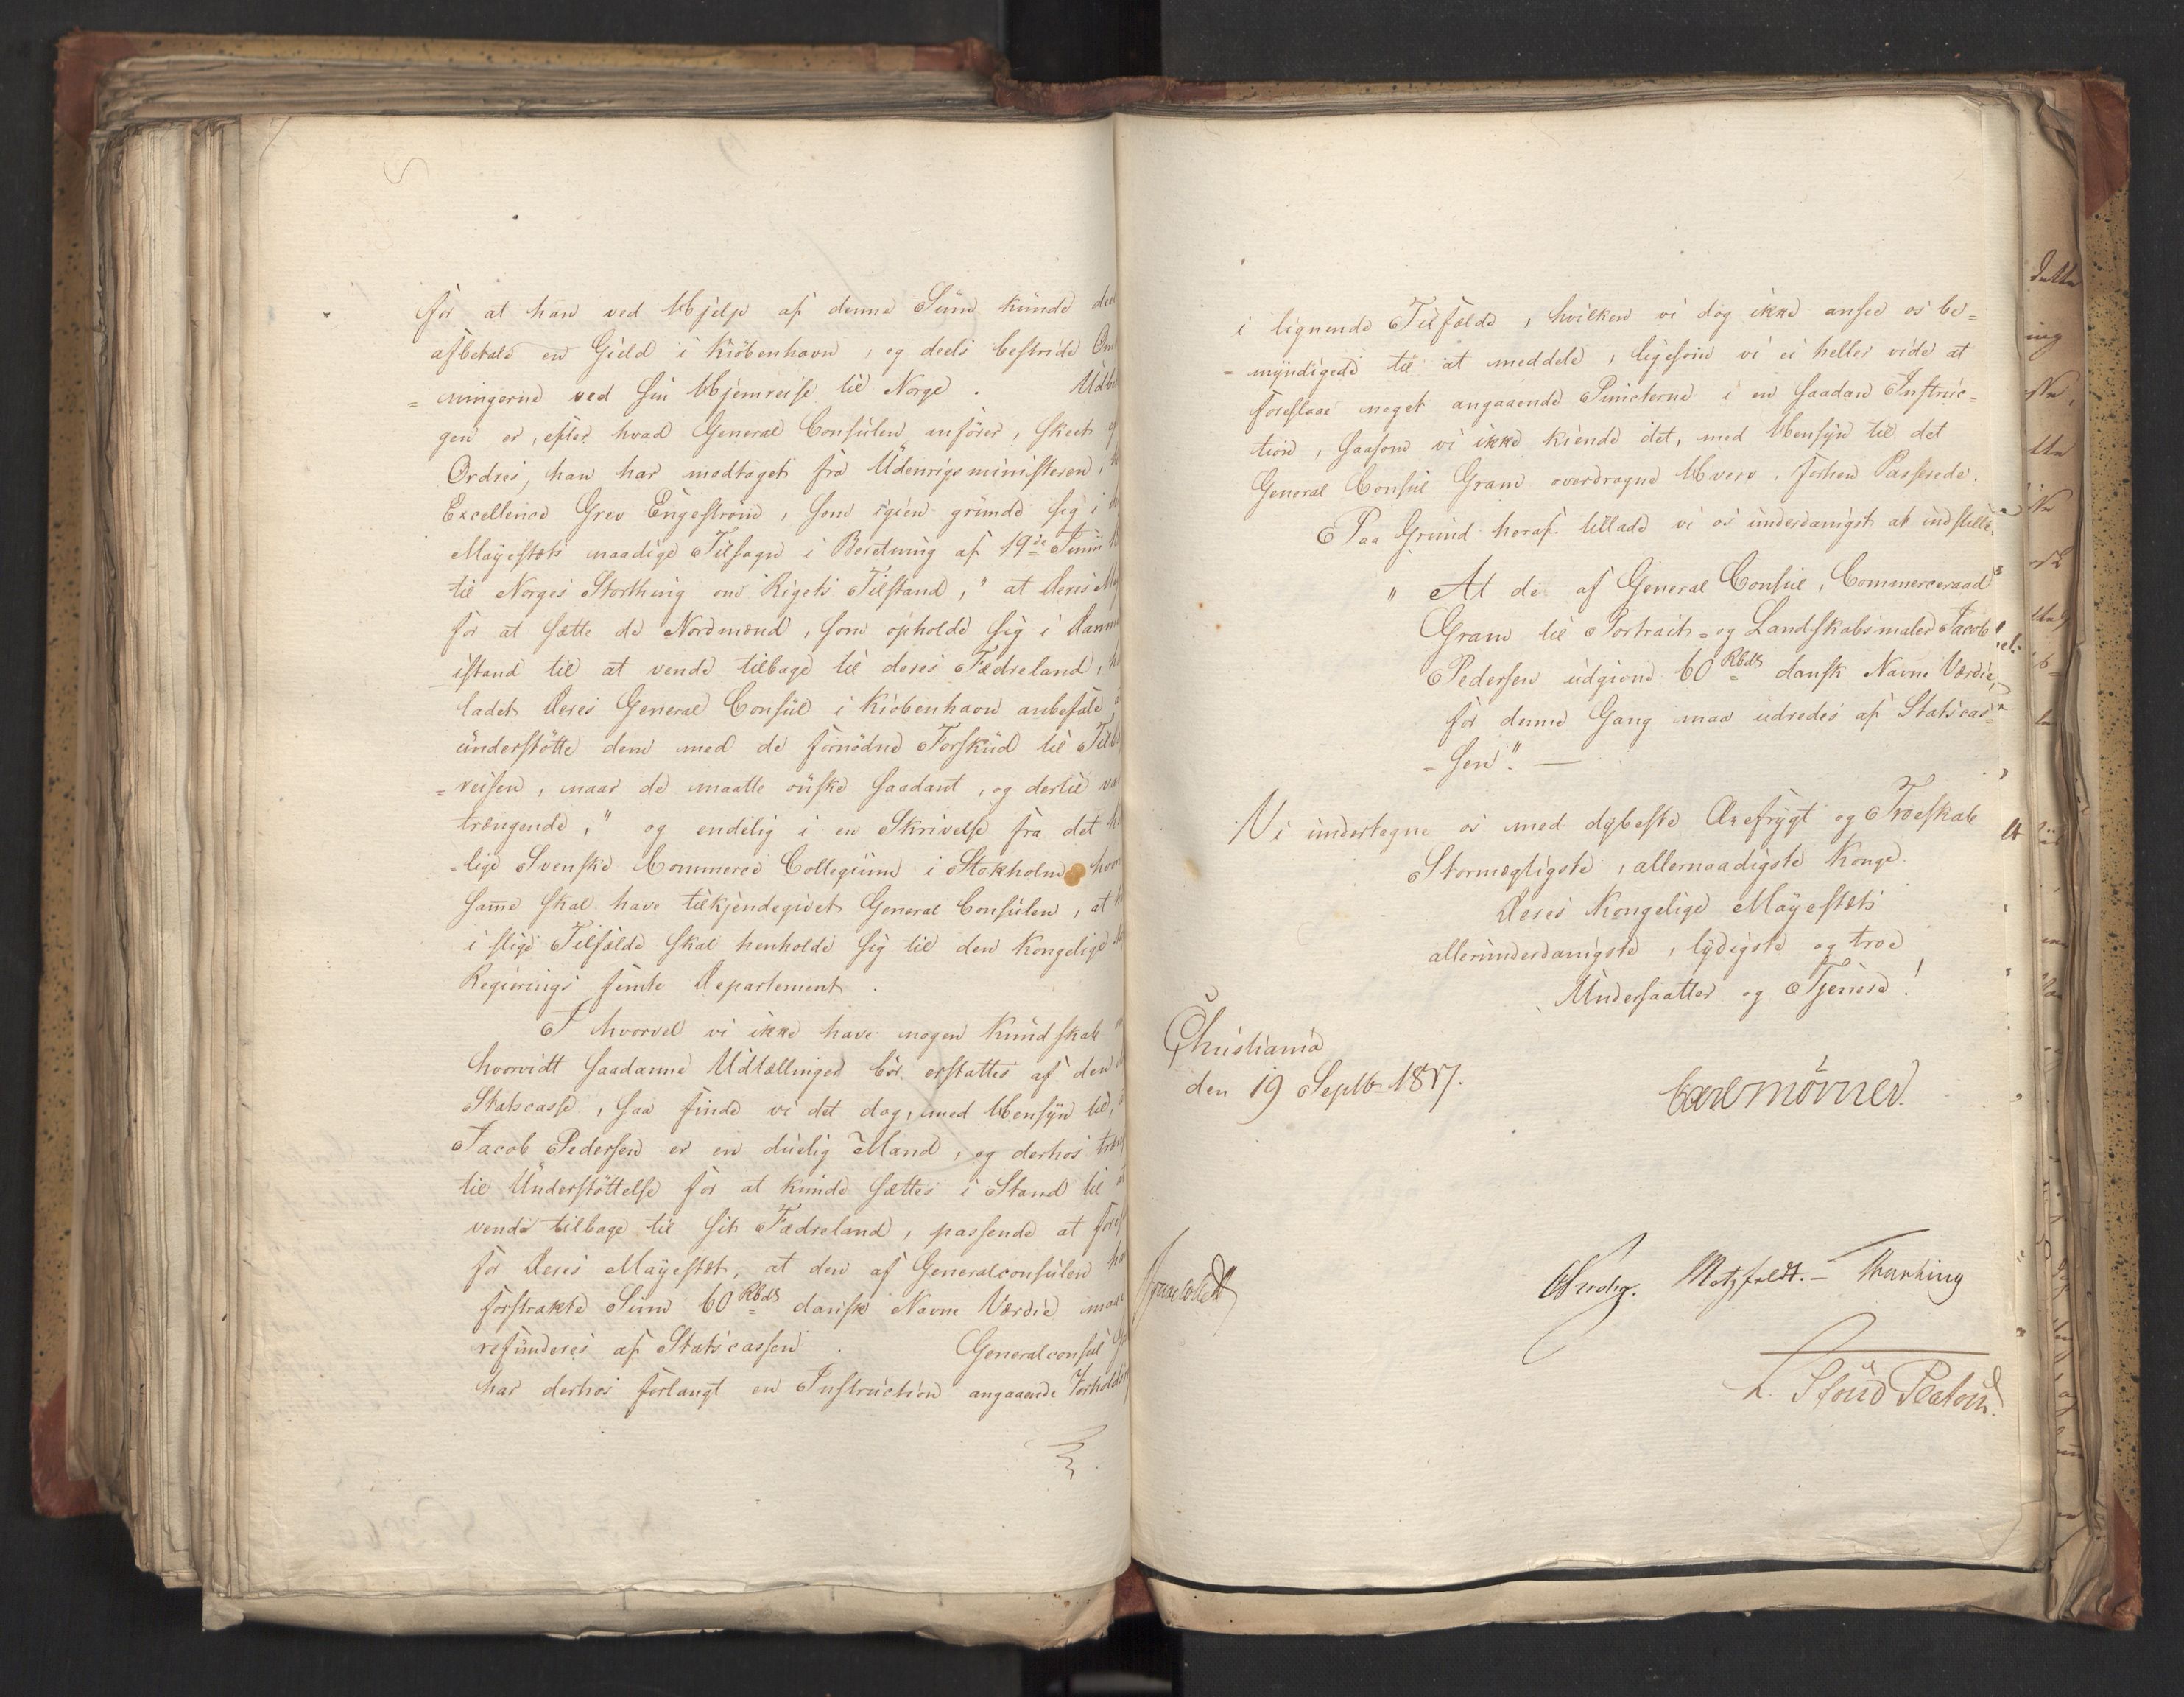 for at han ved Hjelp af denne Sum kunde
afbetale en Gield i Kiöbenhavn, og deels bestride
=ningerne ved sin Hjemreise til Norge.
gen er, efter hvad General Consulen anförer, skeet
Ordres, han har modtaget fra Udenrigsministeren,
Excellence Grev Engeström, som igien grunde sig i
Mayestæts naadige Tilsagn i Beretning af 19de Junii
til Norges Storthing om Rigets Tilstand, "at Deres
for at sætte de Nordmænd, som opholde sig i
istand til at vende tilbage til deres Fædreland,
ladet Deres General Consul i Kiöbenhavn anbefale
understötte dem med de fornödne Forskud til
=reisen, naar de maatte önske saadant, og dertil
trængende," og endelig i en Skrivelse fra det
=lige Svenske Commerce Collegium i Stokholm
samme skal have tilkjendegivet General Consulen, at
i slige Tilfælde skal henholde sig til den Kongelige
Regierings femte Departement.
I hvorvel vi ikke have nogen Kundskab
hvorvidt saadanne Udtællinger bör erstattes af den
Statscasse, saa finde vi det dog, med Hensyn til,
Jacob Pedersen er en duelig Mand, og derhos
til Understöttelse for at kunde sættes i Stand til
vende tilbage til sit Fædreland, passende at
for Deres Mayestæt, at den af Generalconsulen
forstrakte Sum 60 Rbdr dansk Navne Værdie maae
refunderes af Statscassen. Generalconsul
har derhos forlangt en Instruction angaaende
i lignende Tilfælde, hvilken vi dog ikke ansee os be=
=myndigede til at meddele, ligesom vi ei heller vide at
foreslaae noget angaaende Puncterne i en saadan Instruc=
tion, saasom vi ikke kiende det, med Hensyn til det
General Consul Gram overdragne Hverv, forhen Passerede.
Paa Grund heraf tillade vi os underdanigst at indstille:
"At de af General Consul, Commerceraad
Gram til Portrait- og Landskabsmaler Jacob
Pedersen udgivne 60 Rbdr dansk Navne Værdie,
for denne Gang maa udredes af Statscas=
=sen". —
Vi undertegne os med dybeste Ærefrygt og Troeskab
Stormægtigste, allernaadigste Konge
Deres Kongelige Mayestæts
allerunderdanigste, lydigste og troe
Undersaatter og Tjenere!
Christiania
den 19 Septbr 1817.
Carl Mörner.
Krohg. Motzfeldt. — Thanking
L. Stoud Platou.